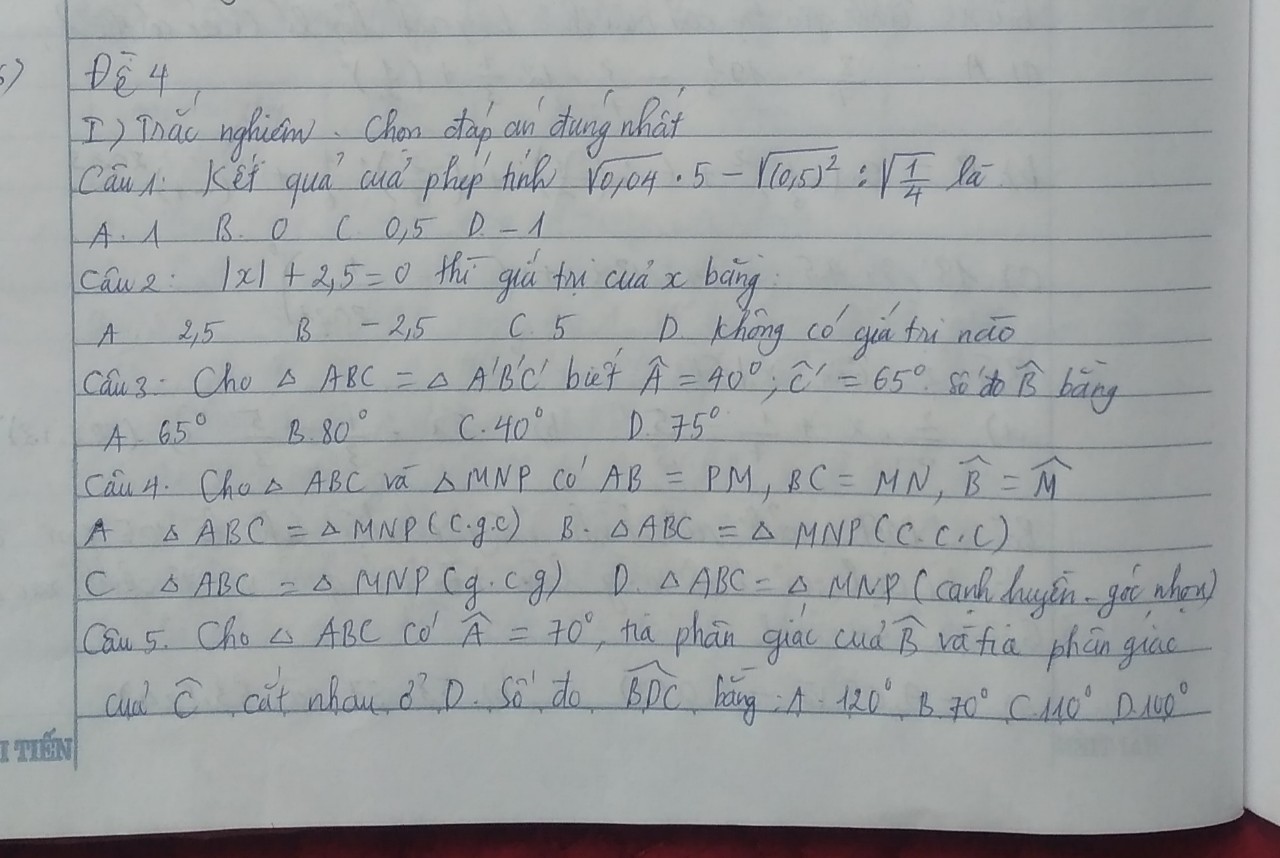 5)
Đề 4
I) Trắc nghiệm. Chọn đáp án đúng nhất
Câu 1: Kết quả của phép tính √0,04 . 5 - √(0,5)² : √1/4 là
A. 1 B. 0 C. 0,5 D. - 1
Câu 2: |x| + 2,5 = 0 thì giá trị của x bằng:
A 2,5 B. - 2,5 C. 5 D. Không có giá trị nào
Câu 3: Cho △ ABC = △ A'B'C' biết Â = 40⁰; Ĉ' = 65⁰. Số đo B̂ bằng
A. 65⁰ B. 80⁰ C. 40⁰ D. 75⁰
Câu 4. Cho △ ABC và △ MNP có AB = PM, BC = MN, B̂ = M̂
A △ ABC = △ MNP (c.g.c) B. △ ABC = △ MNP (c.c.c)
C. △ ABC = △ MNP (g.c.g) D. △ ABC = △ MNP (cạnh huyền - góc nhọn)
Câu 5. Cho △ ABC có Â = 70⁰, tia phân giác của B̂ và tia phân giác
của Ĉ cắt nhau ở D. Số đo BDC bằng: A. 120⁰ B. 70⁰ C. 110⁰ D. 100⁰
I TIẾN